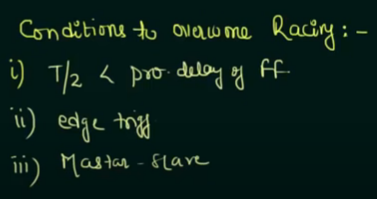 Conditions to overcome Racing : -
i) T/2 < pro. delay of ff.
ii) edge trigg
iii) Mastar - slave